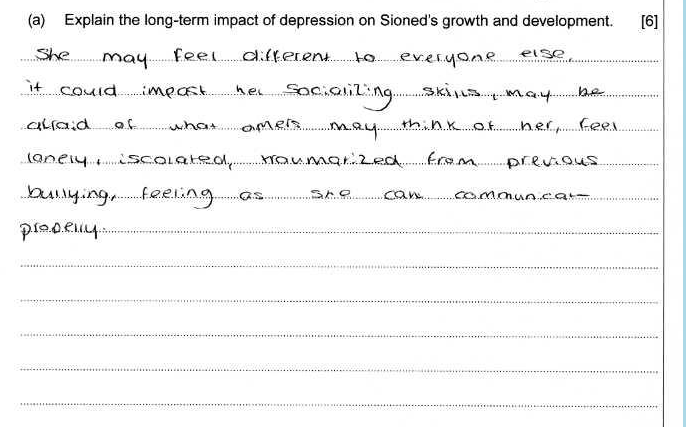 (a) Explain the long-term impact of depression on Sioned's growth and development. [6]
She may feel different to everyone else,
it could impact her Socializing skills, may be
afraid of what others may think of her, feel
lonely, iscolated, traumatized from previous
bullying, feeling as she can communicat
properly.